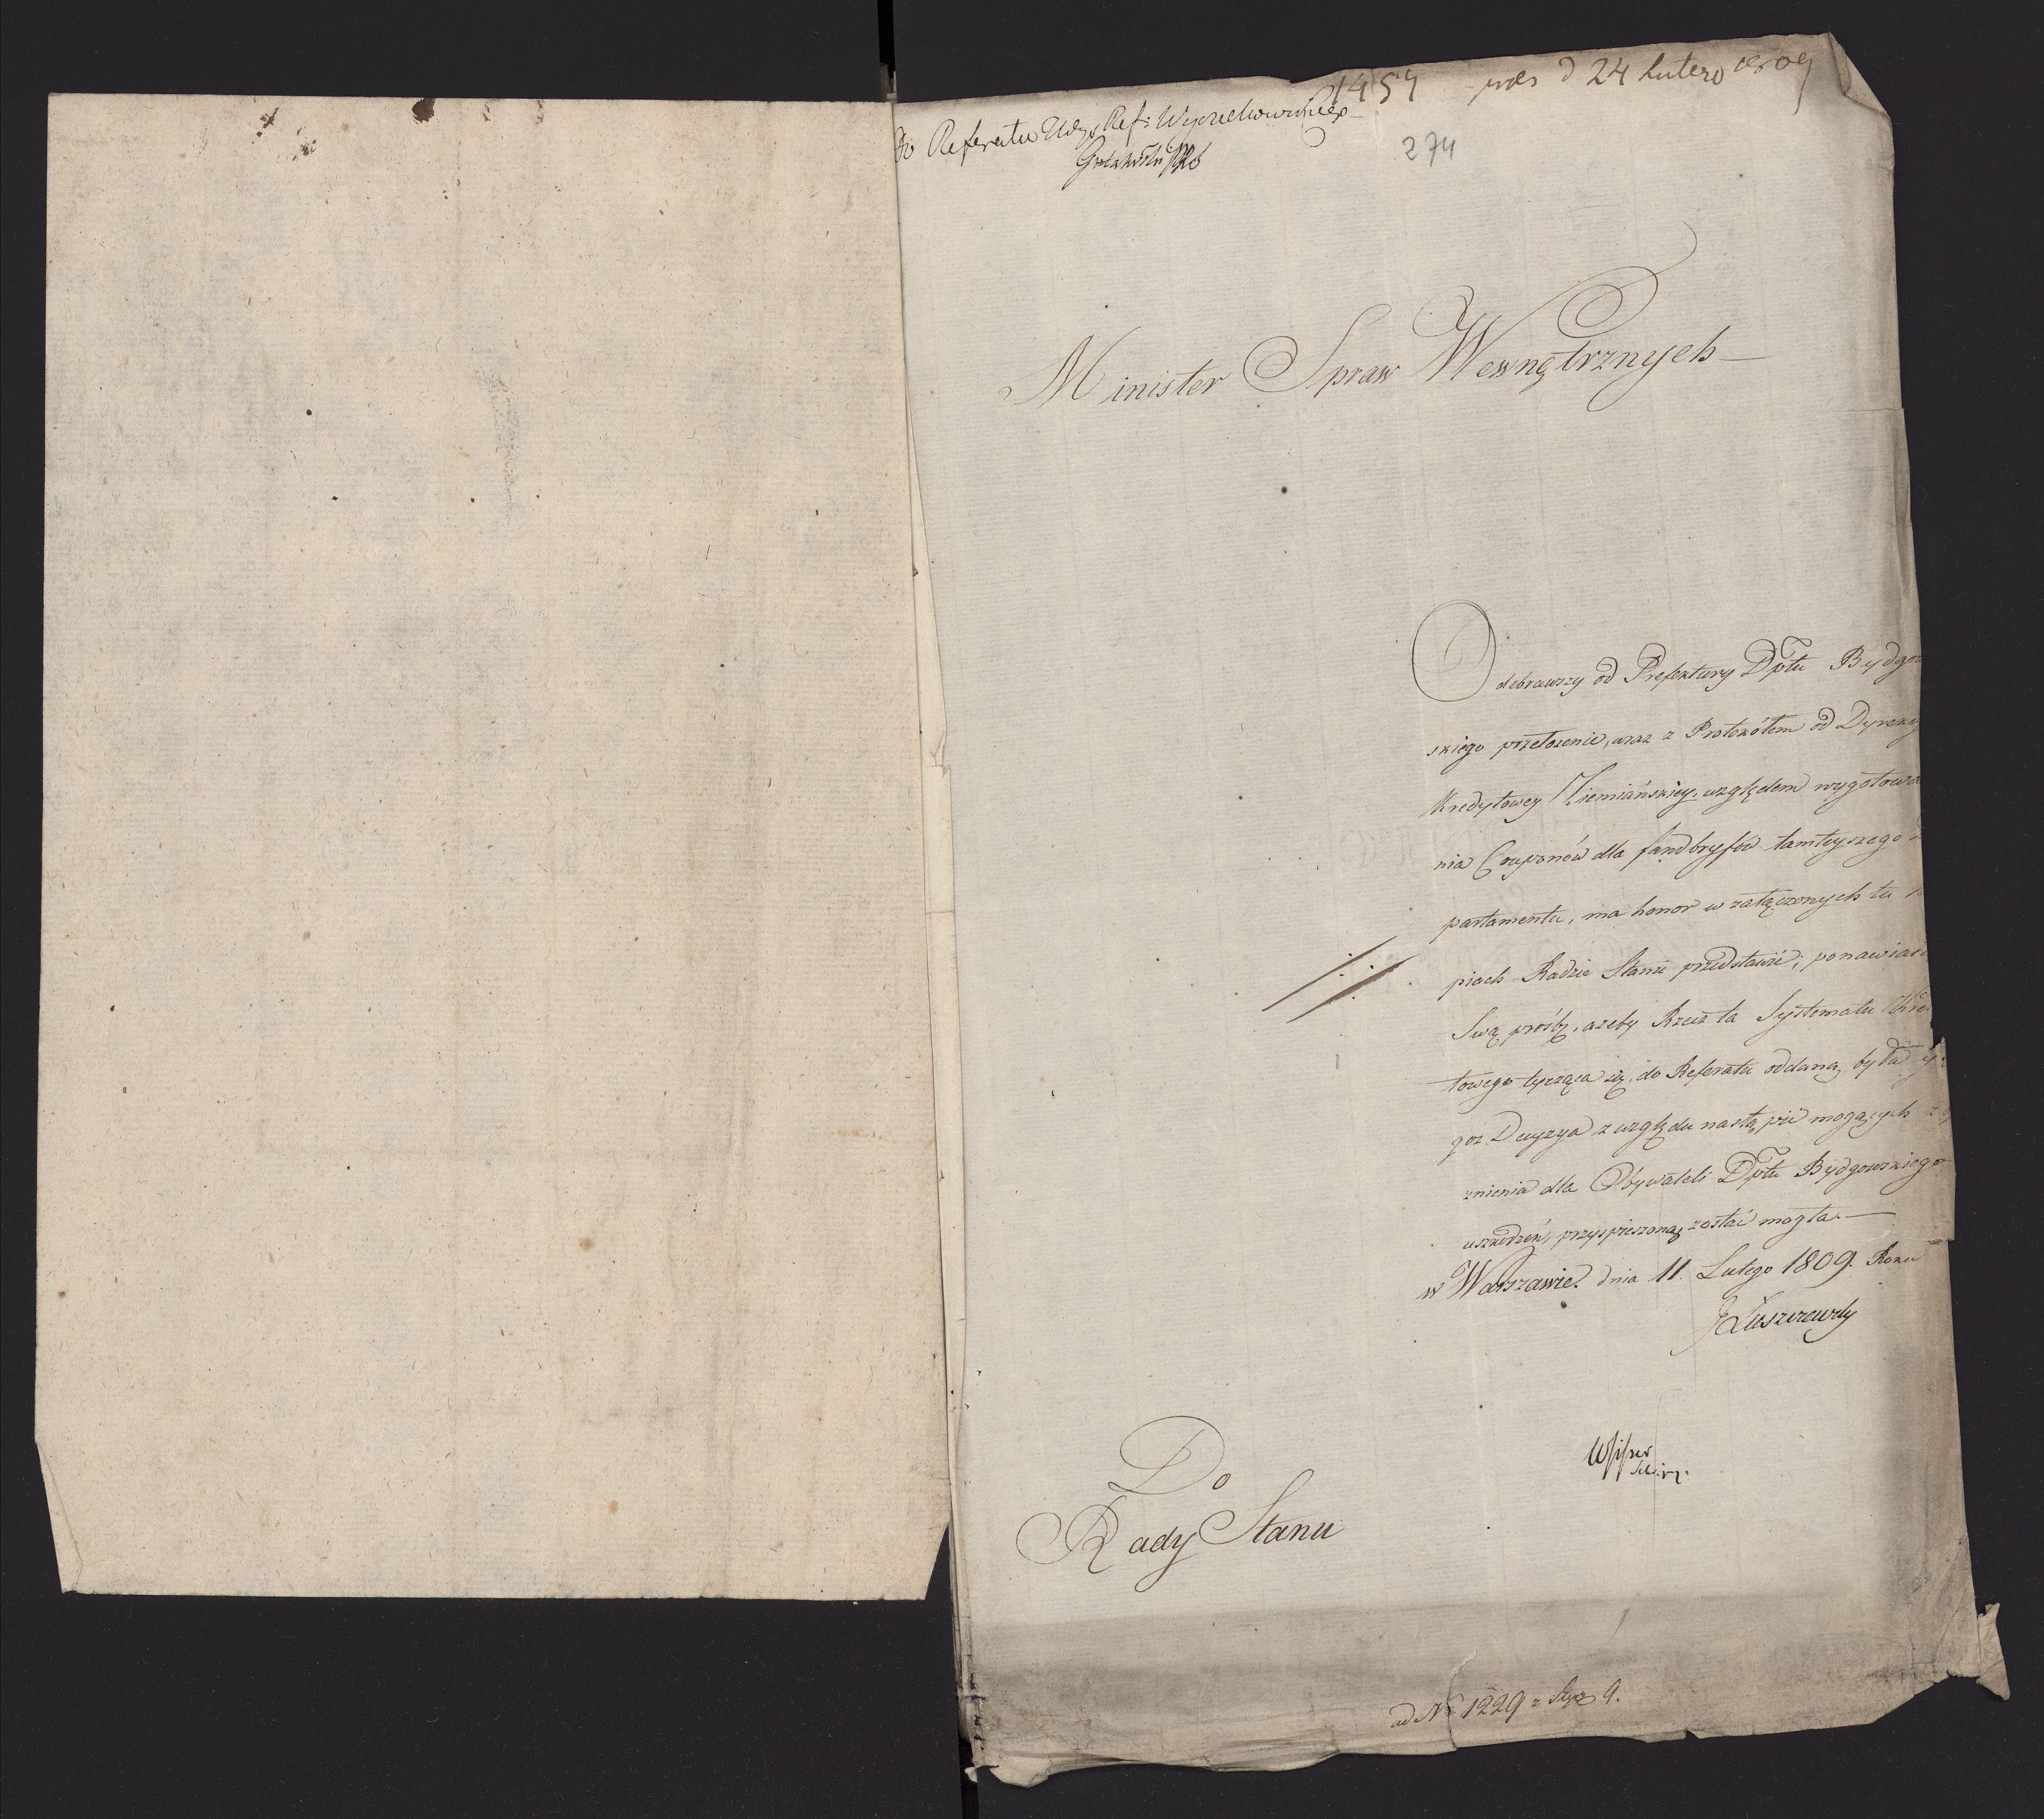 1459 pres d 24 Lutego 1809
Do Referatu Ref:
274
Minister Spraw Wewnętrznych
Odebrawszy od Prefektury Dptu Bydgow
skiego przełożenie, wraz z Protokółem od Dyrekcy
Kredytowey Ziemiańskiey, względem wygotowa
nia Couponów dla fandbryfów tamteyszego
partamentu, ma honor w załączonych tu
piach Radzie Stanu przedstawić, ponawiaiąc
Swą prośbę, ażeby Rzecz ta Systematu Kre
towego tycząca się, do Referatu oddaną była
goż Decyzya z względu nastąpić mogących z
znienia dla Obywateli Dptu Bydgowskiego
uszkodzeń, przyspieszoną zostać mogła.—
w Warszawie dnia 11. Lutego 1809. Roku
JŁuszczewsky
Do
Rady Stanu
ad No 1229 z 9.